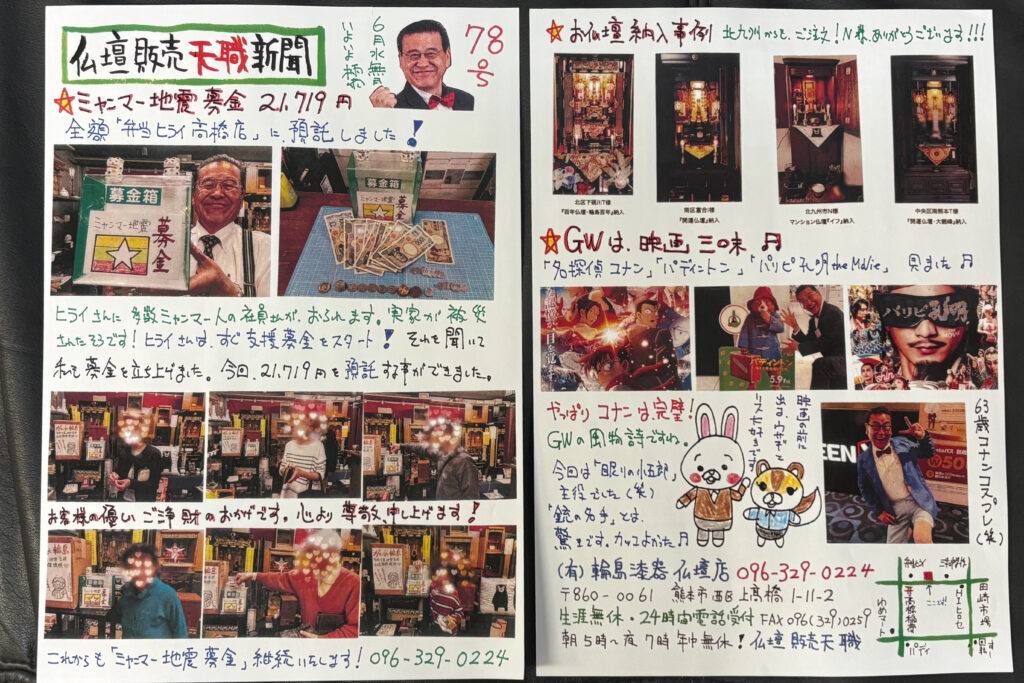 仏壇販売天職新聞
6月水無
いよいよ橋
78号
☆ミャンマー地震募金 21,719円
全額「弁当ヒライ高橋店」に、預託しました!
募金箱
ミャンマー地震
募金
募金箱
ミャンマー地震
募金
ヒライさんに多数ミャンマー人の社員さんが、おられます。実家が被災
されたそうです!ヒライさんは、すぐ支援募金をスタート!それを聞いて
私も募金を立ち上げました。今回、21,719円を預託する事ができました。
お客様の優しいご浄財のおかげです。心より尊敬申し上げます!
これからも「ミャンマー地震募金」継続いたします!096-329-0224
☆お仏壇納入事例 北九州からも、ご注文!N様、ありがとうございます!!!
北区下硯川T様
『百年仏壇・輪島百年』納入
南区富合I様
『開運仏壇』納入
北九州市N様
マンション仏壇『イフ』納入
中央区南熊本T様
『開運仏壇・大観峰』納入
☆GWは、映画三昧♬
「名探偵コナン」「パディントン」「パリピ孔明the Movie」見ました♬
パディントン
5.9
パリピ孔明
やっぱりコナンは、完璧!
GWの風物詩ですね。
今回は「眠りの小五郎」
主役でした(笑)
「銃の名手」とは、
驚きです。カッコよかった♬
映画の前に
出る、ウサギと
リス大好きです♡
63歳コナンコスプレ(笑)
(有)輪島漆器仏壇店 096-329-0224
〒860-0061 熊本市西区上高橋1-11-2
生涯無休・24時間電話受付 FAX096(329)0259
朝5時~夜7時年中無休!仏壇販売天職
ここです!
田崎市場
ゆめマート